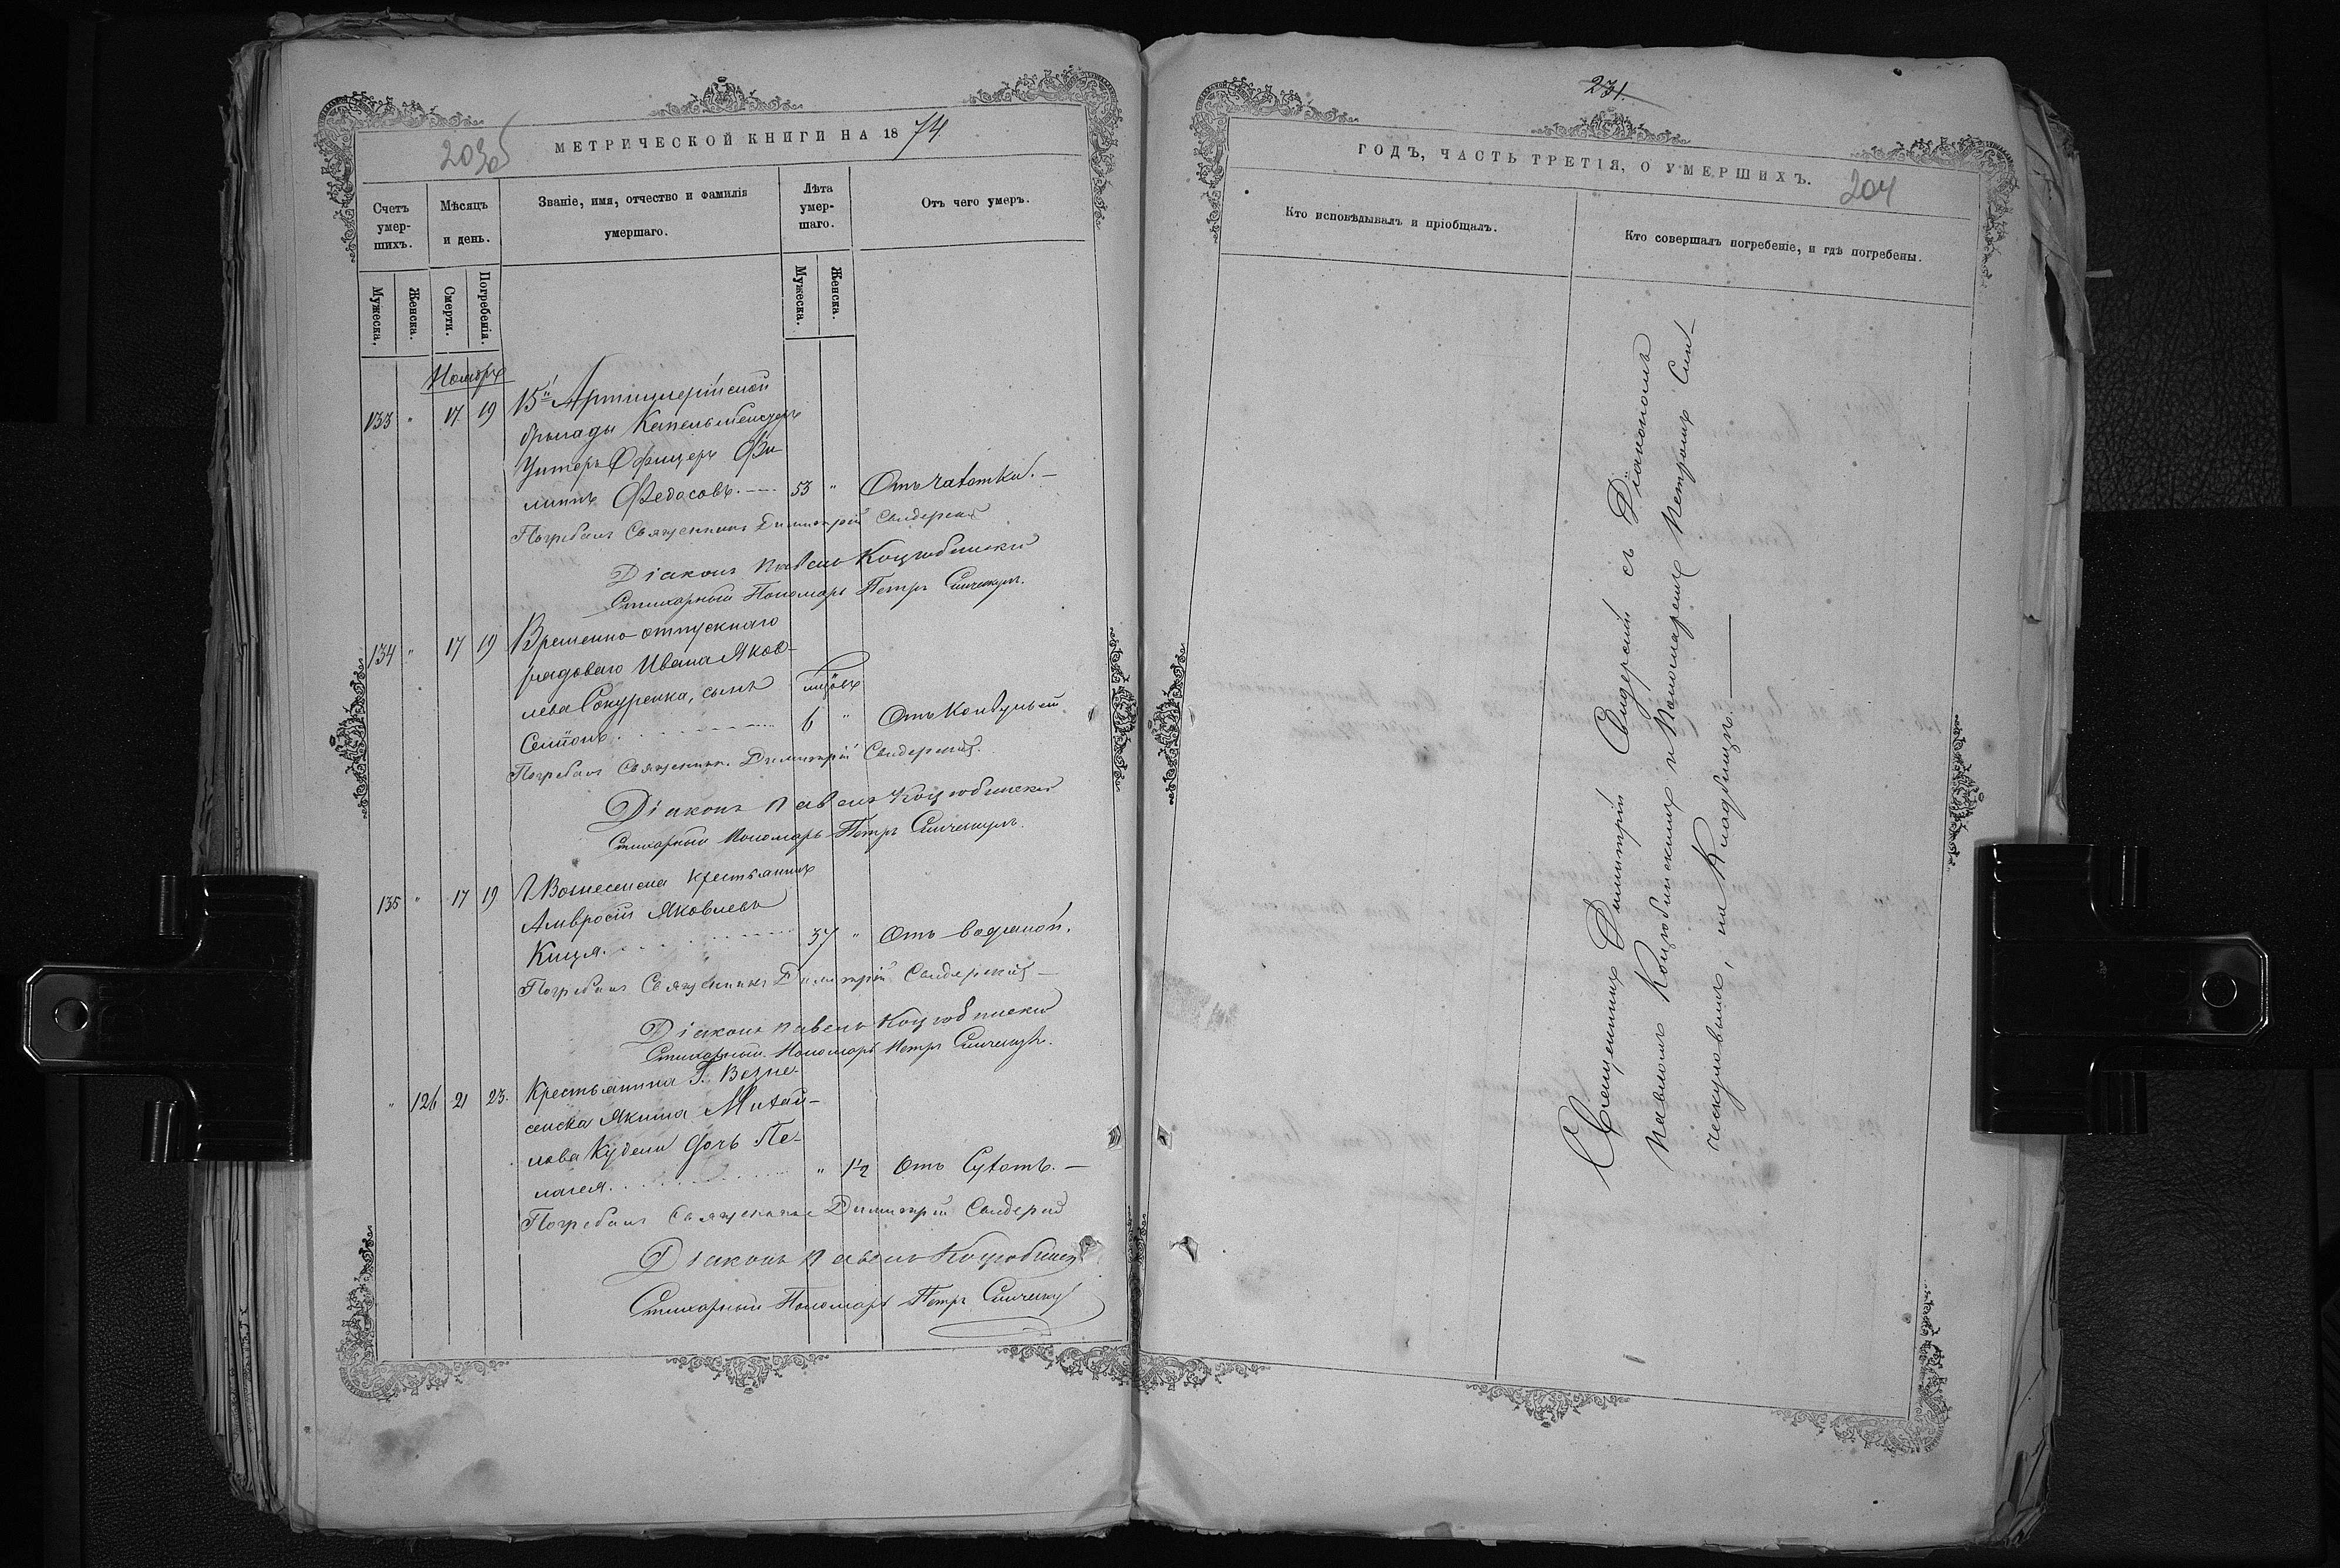 203об
МЕТРИЧЕСКОЙ КНИГИ НА 1874
Счетъ умер-шихъ.
Мѣсяцъ и день.
Званіе, имя, отчество и фамилія умершаго.
Лѣта умер-шаго.
Отъ чего умеръ.
Мужеска.
Женска.
Смерти.
Погребенія.
Мужеска.
Женска.
Ноябрь
133 " 17 19 15й Артиллерійской
бригады Капельмейстеръ
Унтеръ Офицеръ Фи-
липпъ Федосовъ. 53 " Отъ чахотки.
Погребалъ Священникъ Димитрій Свидерскій
Діаконъ Павелъ Коцюбинскій
Стихарный Пономарь Петръ
134 " 17 19 Временно-отпускнаго
рядоваго Ивана Яков-
лева сынъ мцовъ
Семіонъ. 6 " Отъ Конвульсій.
Погребалъ Священник. Димитрій Свидерскій.
Діаконъ Павелъ Коцюбинскій
Стихарный Пономарь Петръ
135 " 17 19 Г. Вознесенска крестьянинъ
Амвросій Яковлевъ
37 " Отъ водяной.
Погребалъ Священникъ Димитрій Свидерскій
Діаконъ Павелъ Коцюбинскій
Стихарный Пономарь Петръ
" 126 21 23. Крестьянина Г. Возне-
сенска Якима Михай-
лова Кудели дочь Пе-
лагея. " 1½ Отъ Сухотъ.
Погребалъ Священникъ Димитрій Свидерскій
Діаконъ Павелъ Коцюбинскій
Стихарный Пономарь Петръ
231.
ГОДЪ, ЧАСТЬ ТРЕТІЯ, О УМЕРШИХЪ.
204
Кто исповѣдывалъ и пріобщалъ.
Кто совершалъ погребеніе, и гдѣ погребены.
Священникъ Димитрій Свидерскій съ Діакономъ
Павломъ Коцюбинскимъ и Пономаремъ Петромъ Син-
ческуловымъ, на Кладбищѣ.